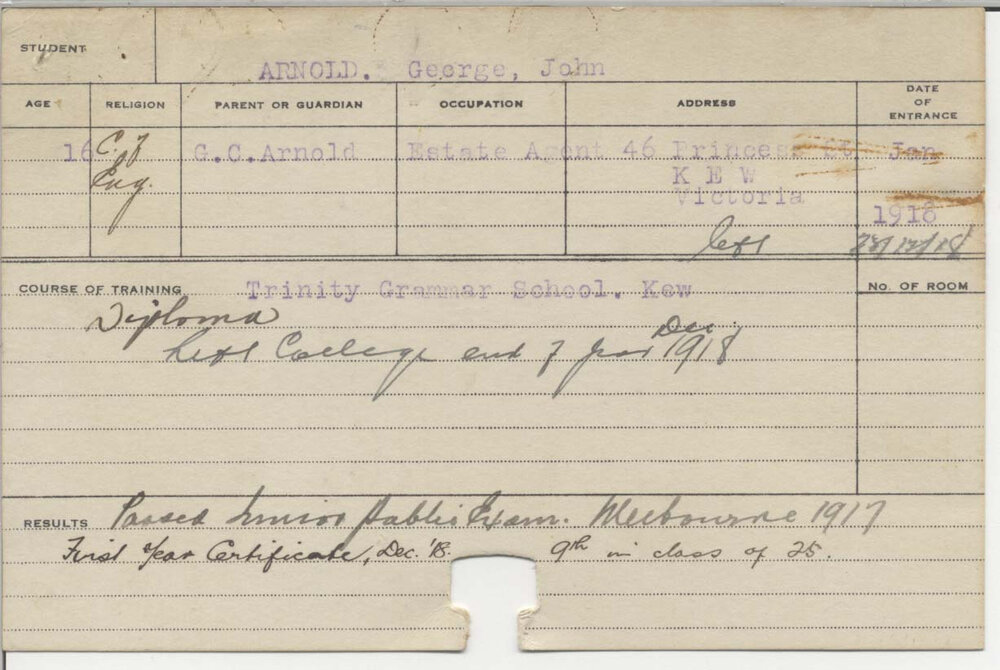 STUDENT
ARNOLD. George, John
AGE RELIGION PARENT OR GUARDIAN OCCUPATION ADDRESS DATE OF ENTRANCE
16 C. of G.C.Arnold Estate Agent 46 Princess St Jan
Eng. K E W
Victoria
1918
left 28/12/18
COURSE OF TRAINING Trinity Grammar School. Kew No. OF ROOM
Diploma
Left College end of year Dec. 1918
RESULTS Passed Junior Public Exam. Melbourne 1917
First Year Certificate, Dec. '18. 9th in class of 25.